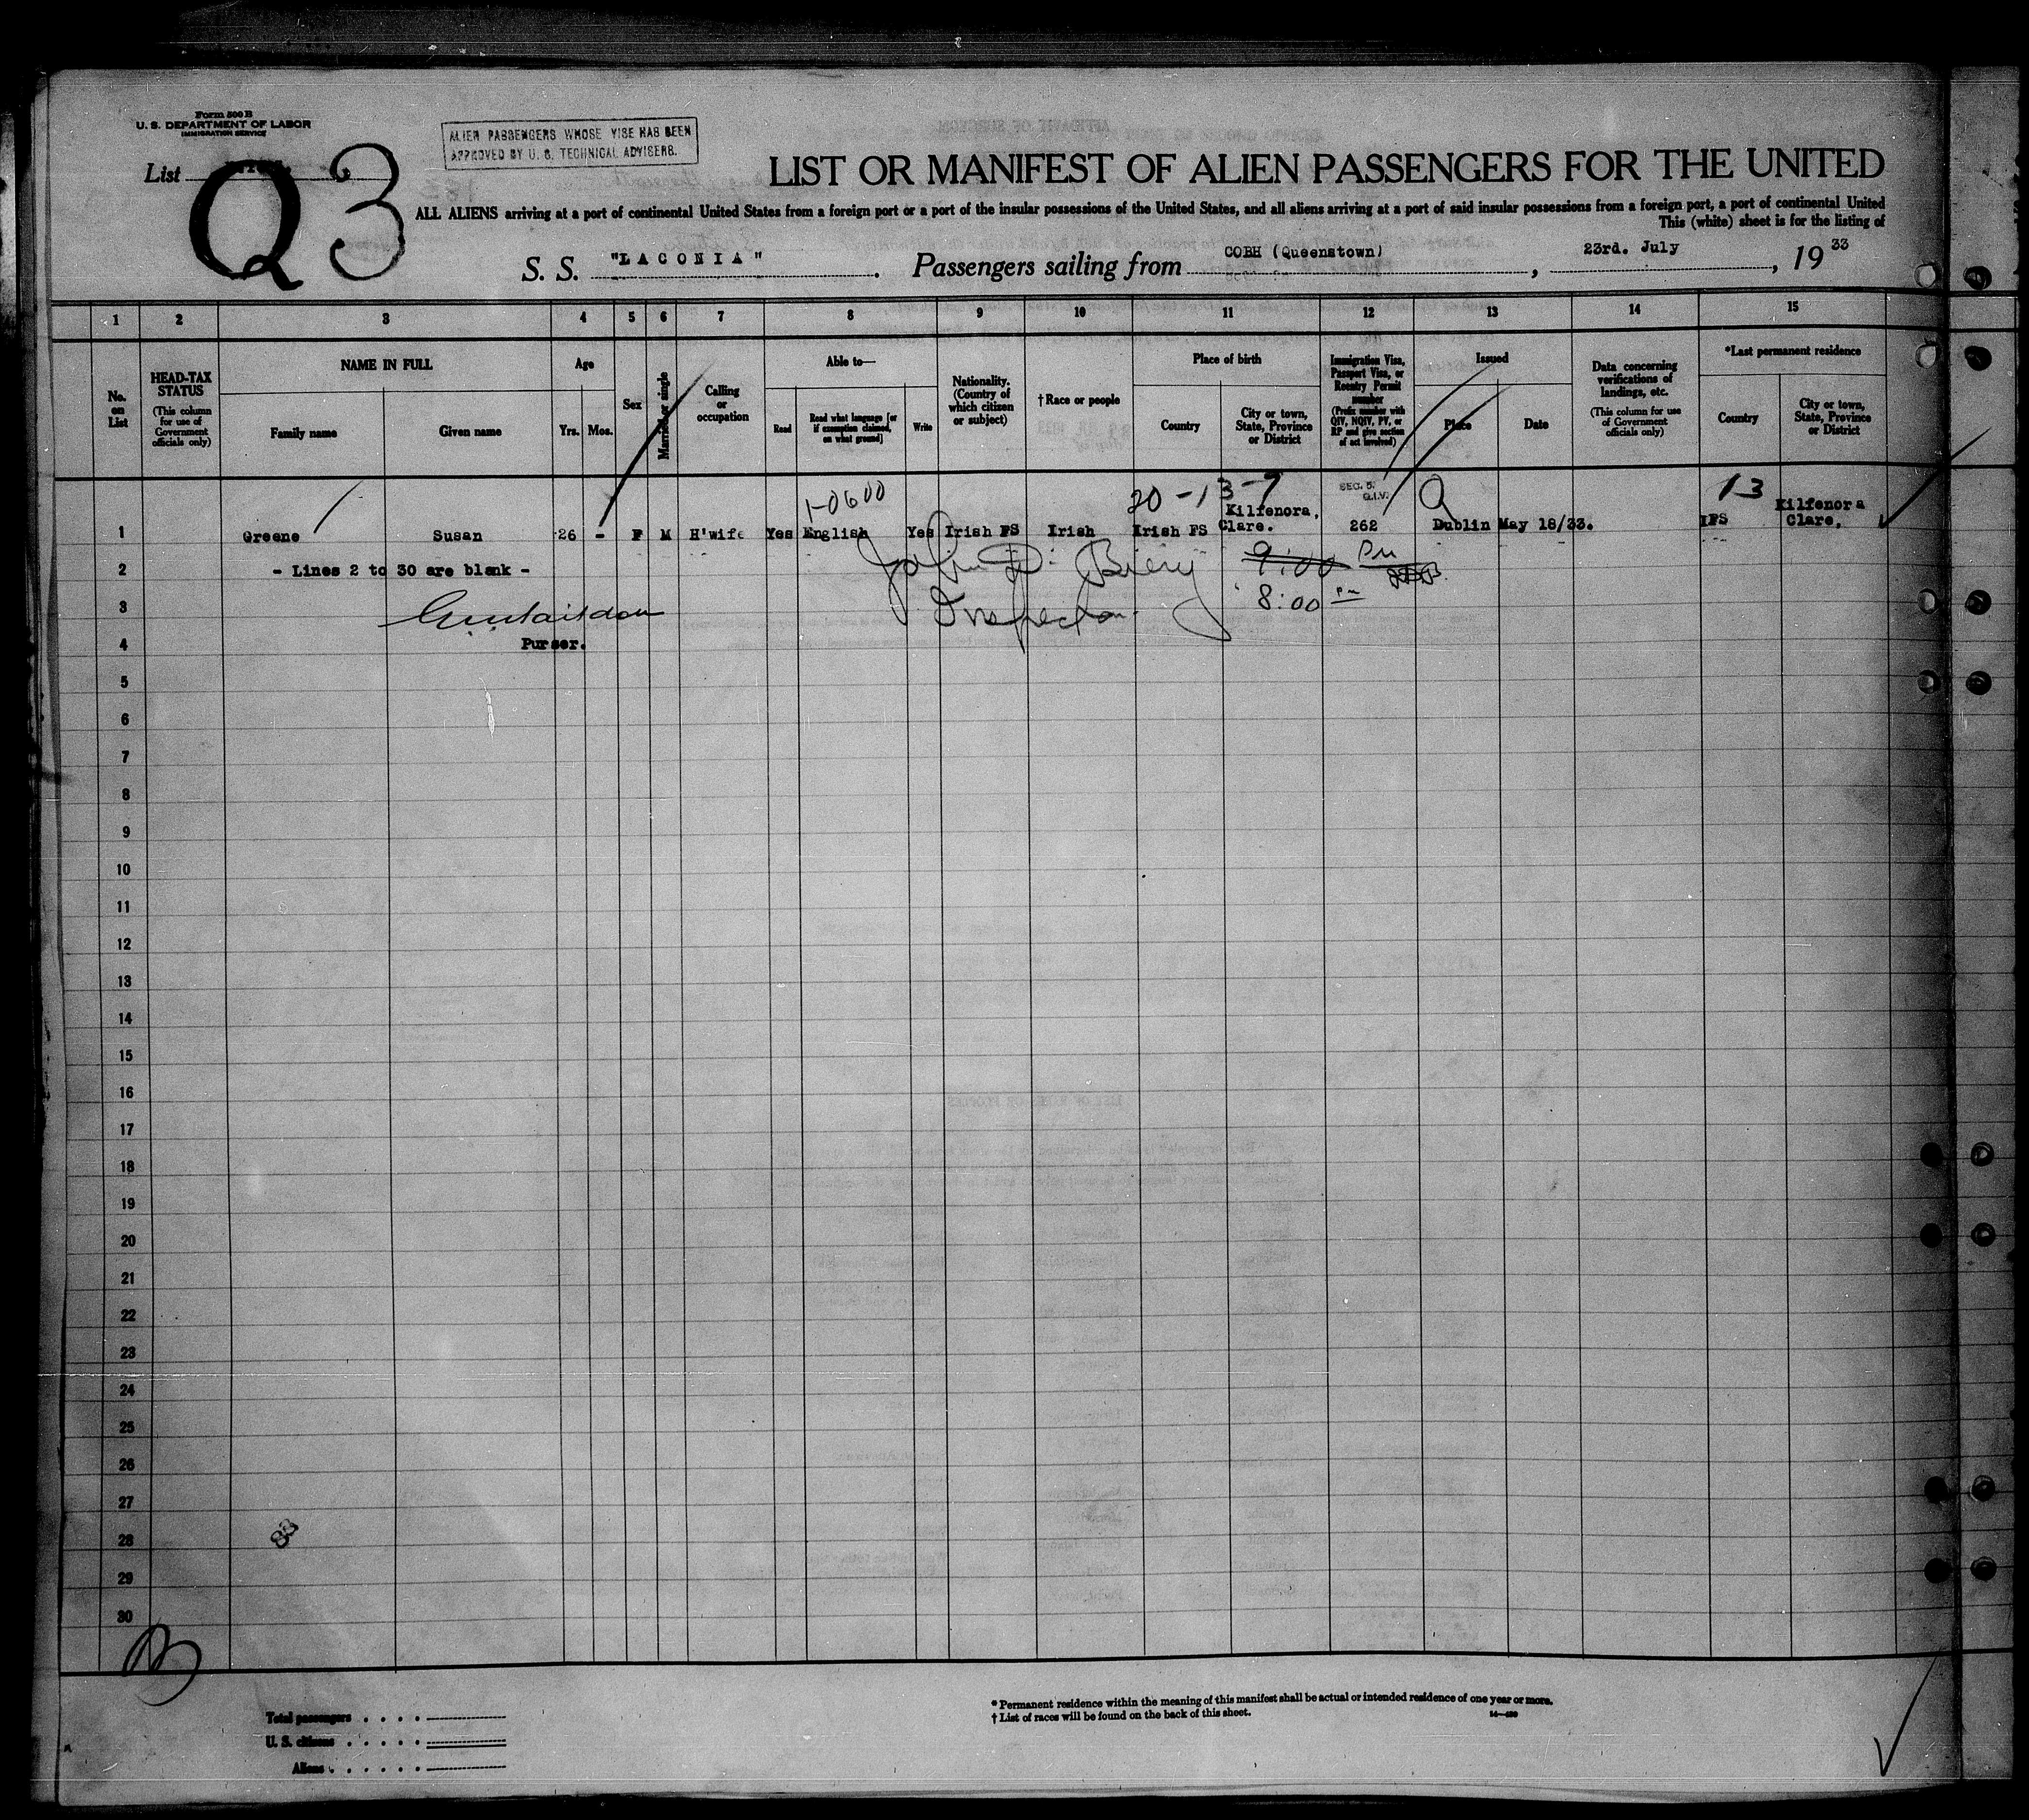 Form 500 B
U. S. DEPARTMENT OF LABOR
IMMIGRATION SERVICE
List
Q3
ALIEN PASSENGERS WHOSE VISE HAS BEEN
APPROVED BY U. S. TECHNICAL ADVISERS.
LIST OR MANIFEST OF ALIEN PASSENGERS FOR THE UNITED
ALL ALIENS arriving at a port of continental United States from a foreign port or a port of the insular possessions of the United States, and all aliens arriving at a port of said insular possessions from a foreign port, a port of continental United
This (white) sheet is for the listing of
S. S. "LACONIA" . Passengers sailing from COBH (Queenstown) , 23rd. July , 19 33
1 2 3 4 5 6 7 8 9 10 11 12 13 14 15
No. on List
HEAD-TAX STATUS
(This column for use of Government officials only)
NAME IN FULL
Family name
Given name
Age
Yrs.
Mos.
Sex
Married or single
Calling or occupation
Able to—
Read
Read what language [or if exemption claimed, on what ground]
Write
Nationality. (Country of which citizen or subject)
† Race or people
Place of birth
Country
City or town, State, Province or District
Immigration Visa, Passport Visa, or Reentry Permit number
(Prefix number with QIV, NQIV, PV, or RP and give section of act involved)
Issued
Place
Date
Data concerning verifications of landings, etc.
(This column for use of Government officials only)
*Last permanent residence
Country
City or town, State, Province or District
1-0600
20 - 13-7
SEC. 5.
Q.I.V.
13
1 Greene Susan 26 - F M H'wife Yes English Yes Irish FS Irish Irish FS Kilfenora, Clare. 262 Dublin May 18/33. IFS Kilfenora Clare.
2 - Lines 2 to 30 are blank -
John D. Biery 9:00 PM
3 Inspector 8:00 pm
4 Purser.
5
6
7
8
9
10
11
12
13
14
15
16
17
18
19
20
21
22
23
24
25
26
27
28
29
30
Total passengers . . . .
U. S. citizens . . . . .
Aliens . . . . . .
* Permanent residence within the meaning of this manifest shall be actual or intended residence of one year or more.
† List of races will be found on the back of this sheet.